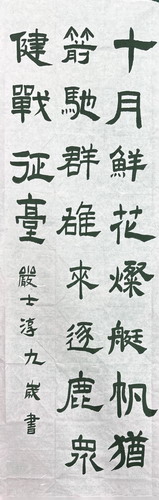 十月鮮花燦艇帆猶
箭馳群雄來逐鹿眾
健戰征臺
嚴士淳九歲書